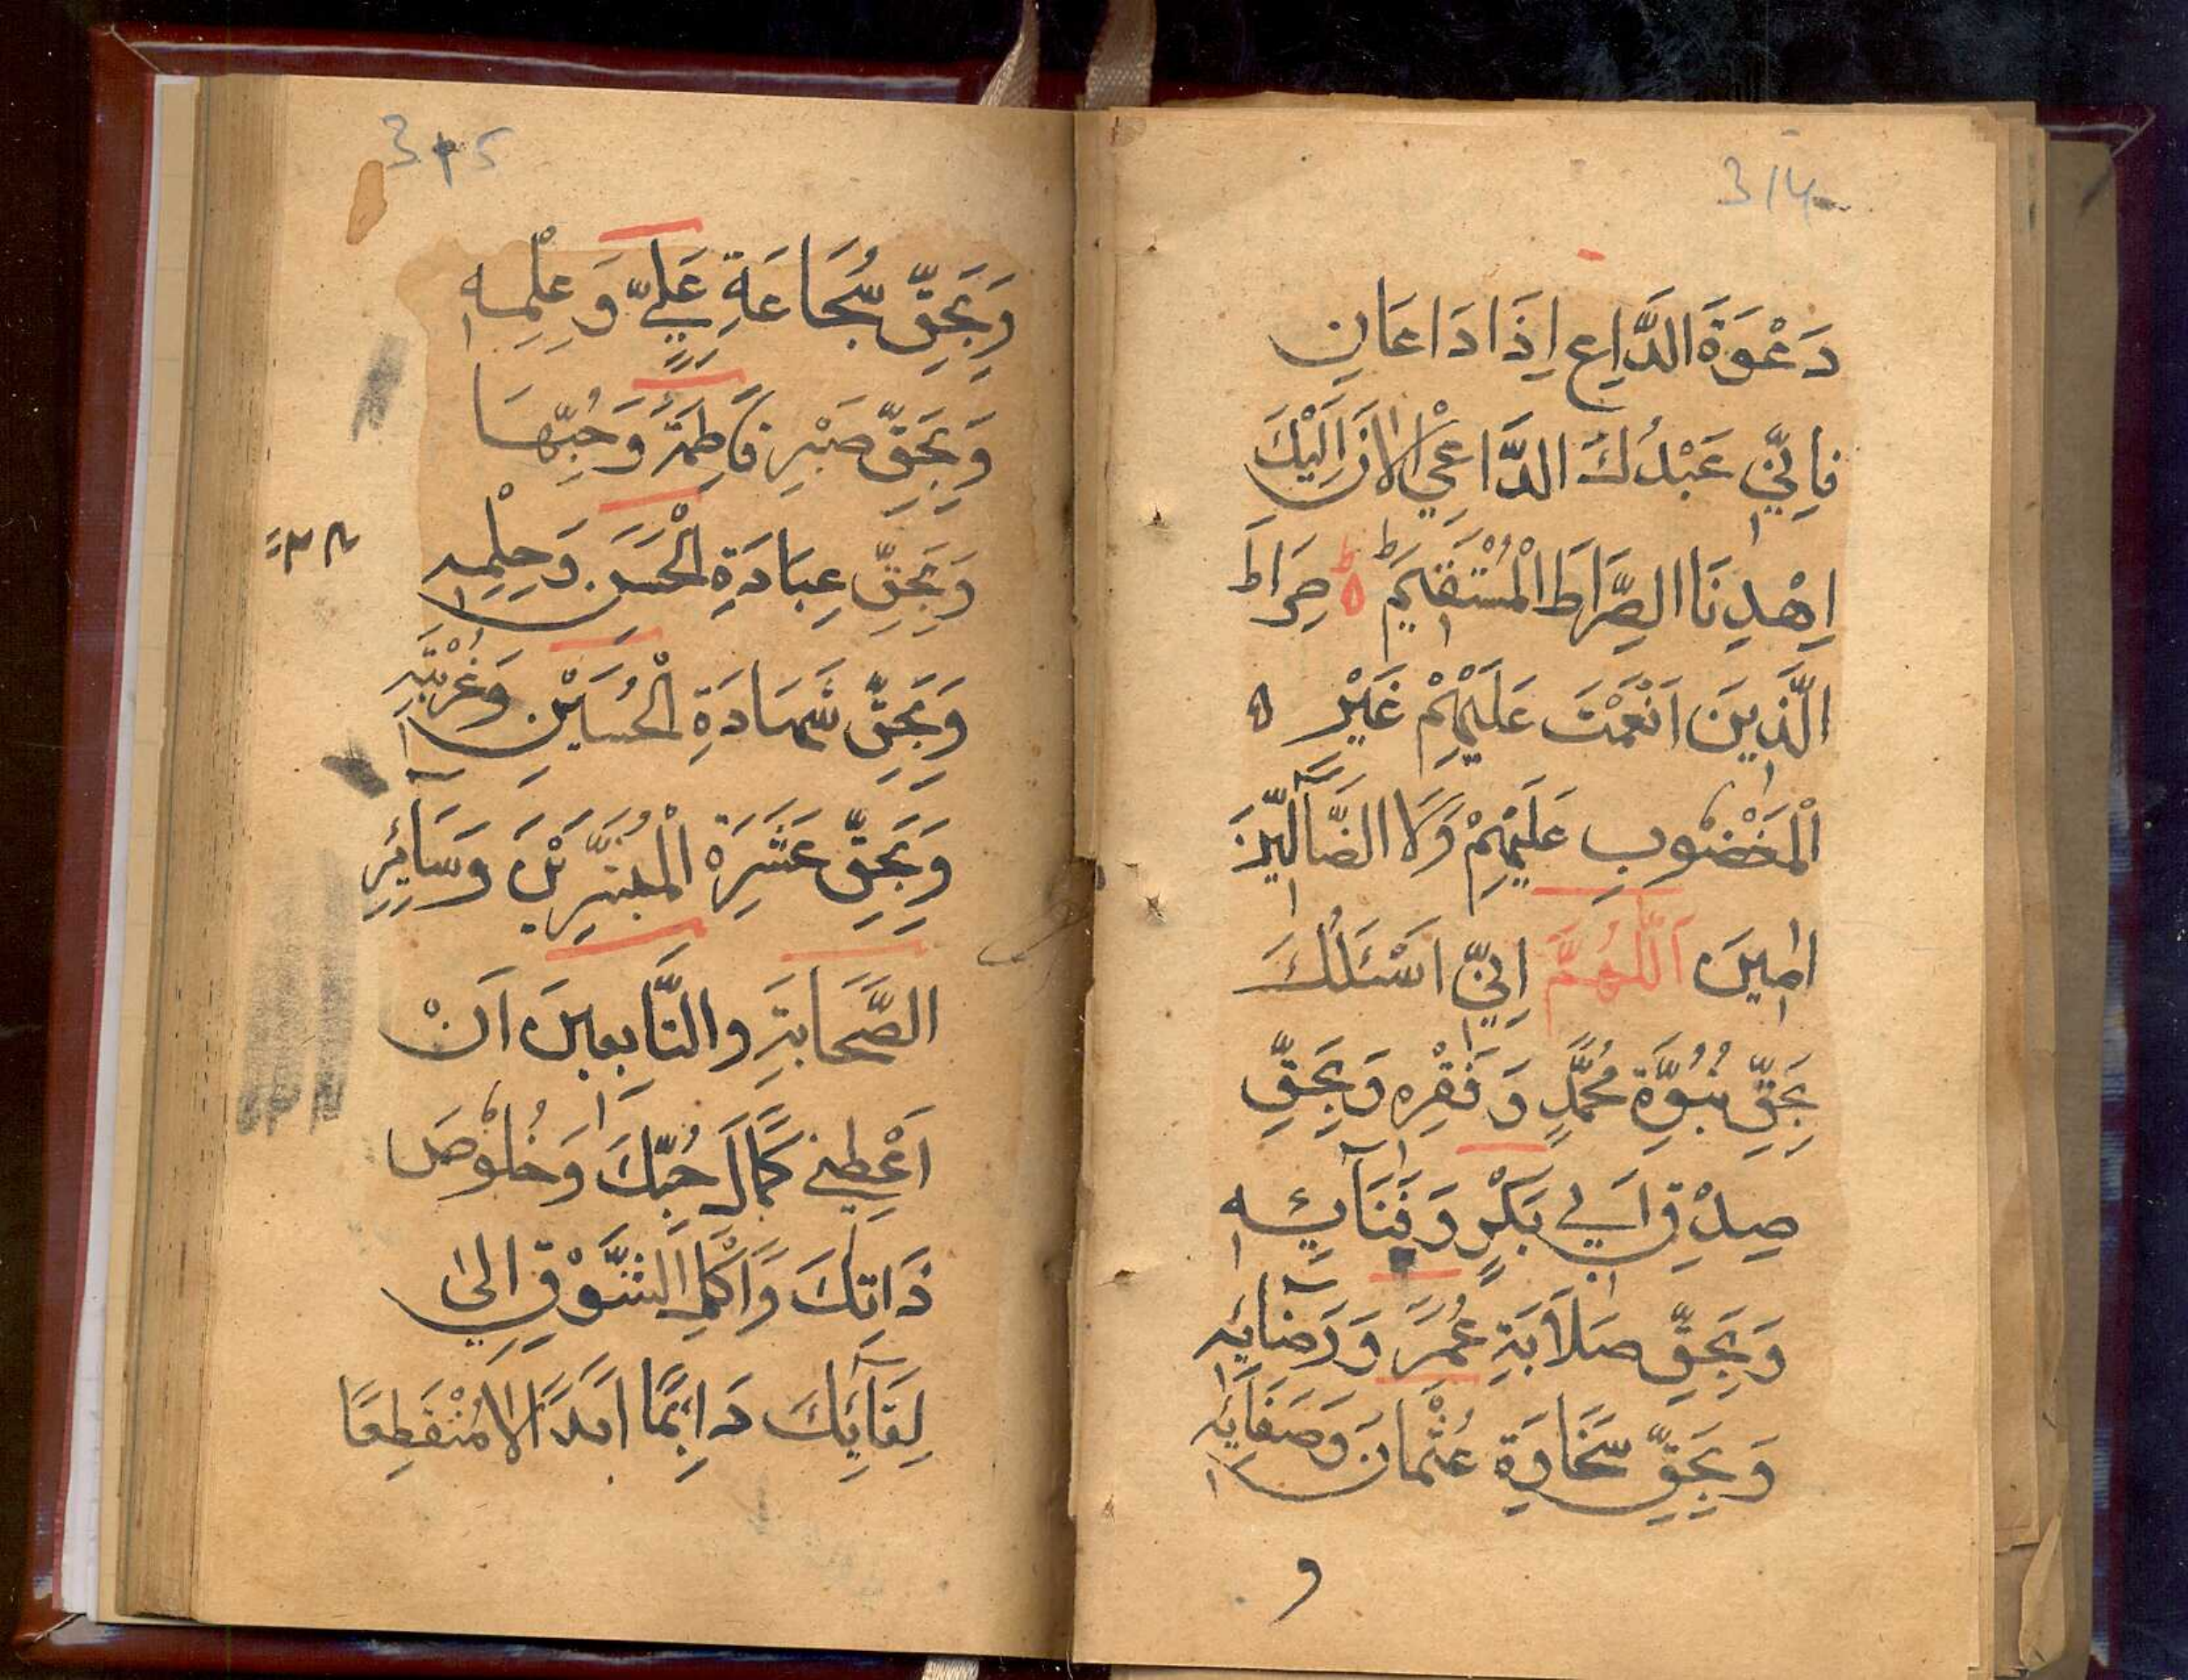 314
دَعْوَةَ الدَّاعِ اِذَا دَاعَانِ
فَاِنِّي عَبْدُكَ الدَّاعِي الْاٰنَ اِلَيْكَ
اِهْدِنَا الصِّرَاطَ الْمُسْتَقِيمَ ط ه صِرَاطَ
الَّذِينَ اَنْعَمْتَ عَلَيْهِمْ غَيْرِ ه
الْمَغْضُوبِ عَلَيْهِمْ وَلَا الضَّآلِّينَ
اٰمِينَ اَللّٰهُمَّ اِنِّي اَسْئَلُكَ
بِحَقِّ نُبُوَّةِ مُحَمَّدٍ وَفَقْرِهِ وَبِحَقِّ
صِدْقِ اَبِي بَكْرٍ وَفَنَآئِهِ
وَبِحَقِّ صَلَابَةِ عُمَرَ وَرِضَآئِهِ
وَبِحَقِّ سَخَاوَةِ عُثْمَانَ وَصَفَآئِهِ
و
315
وَبِحَقِّ شُجَاعَةِ عَلِيٍّ وَعِلْمِهِ
وَبِحَقِّ صَبْرِ فَاطِمَةَ وَحُبِّهَا
وَبِحَقِّ عِبَادَةِ الْحَسَنِ وَحِلْمِهِ
وَبِحَقِّ شَهَادَةِ الْحُسَيْنِ وَغُرْبَتِهِ
وَبِحَقِّ عَشَرَةِ الْمُبَشَّرِيْنَ وَسَآئِرِ
الصَّحَابَةِ وَالتَّابِعِينَ اَنْ
اَعْطِنِي كَمَالَ حُبِّكَ وَخُلُوصَ
ذَاتِكَ وَاَكْمَلَ الشَّوْقِ اِلٰى
لِقَآئِكَ دَائِمًا اَبَدًا لَا مُنْقَطِعًا